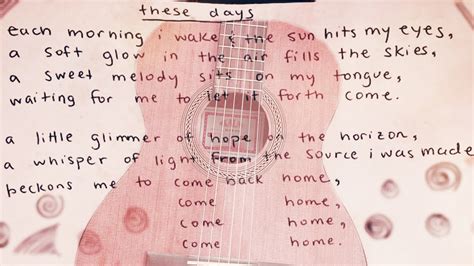 these days
each morning i wake & the sun hits my eyes,
a soft glow in the air fills the skies,
a sweet melody sits on my tongue,
waiting for me to let it forth come.
a little glimmer of hope on the horizon,
a whisper of light from the source i was made
beckons me to come back home,
come home,
come home,
come home.